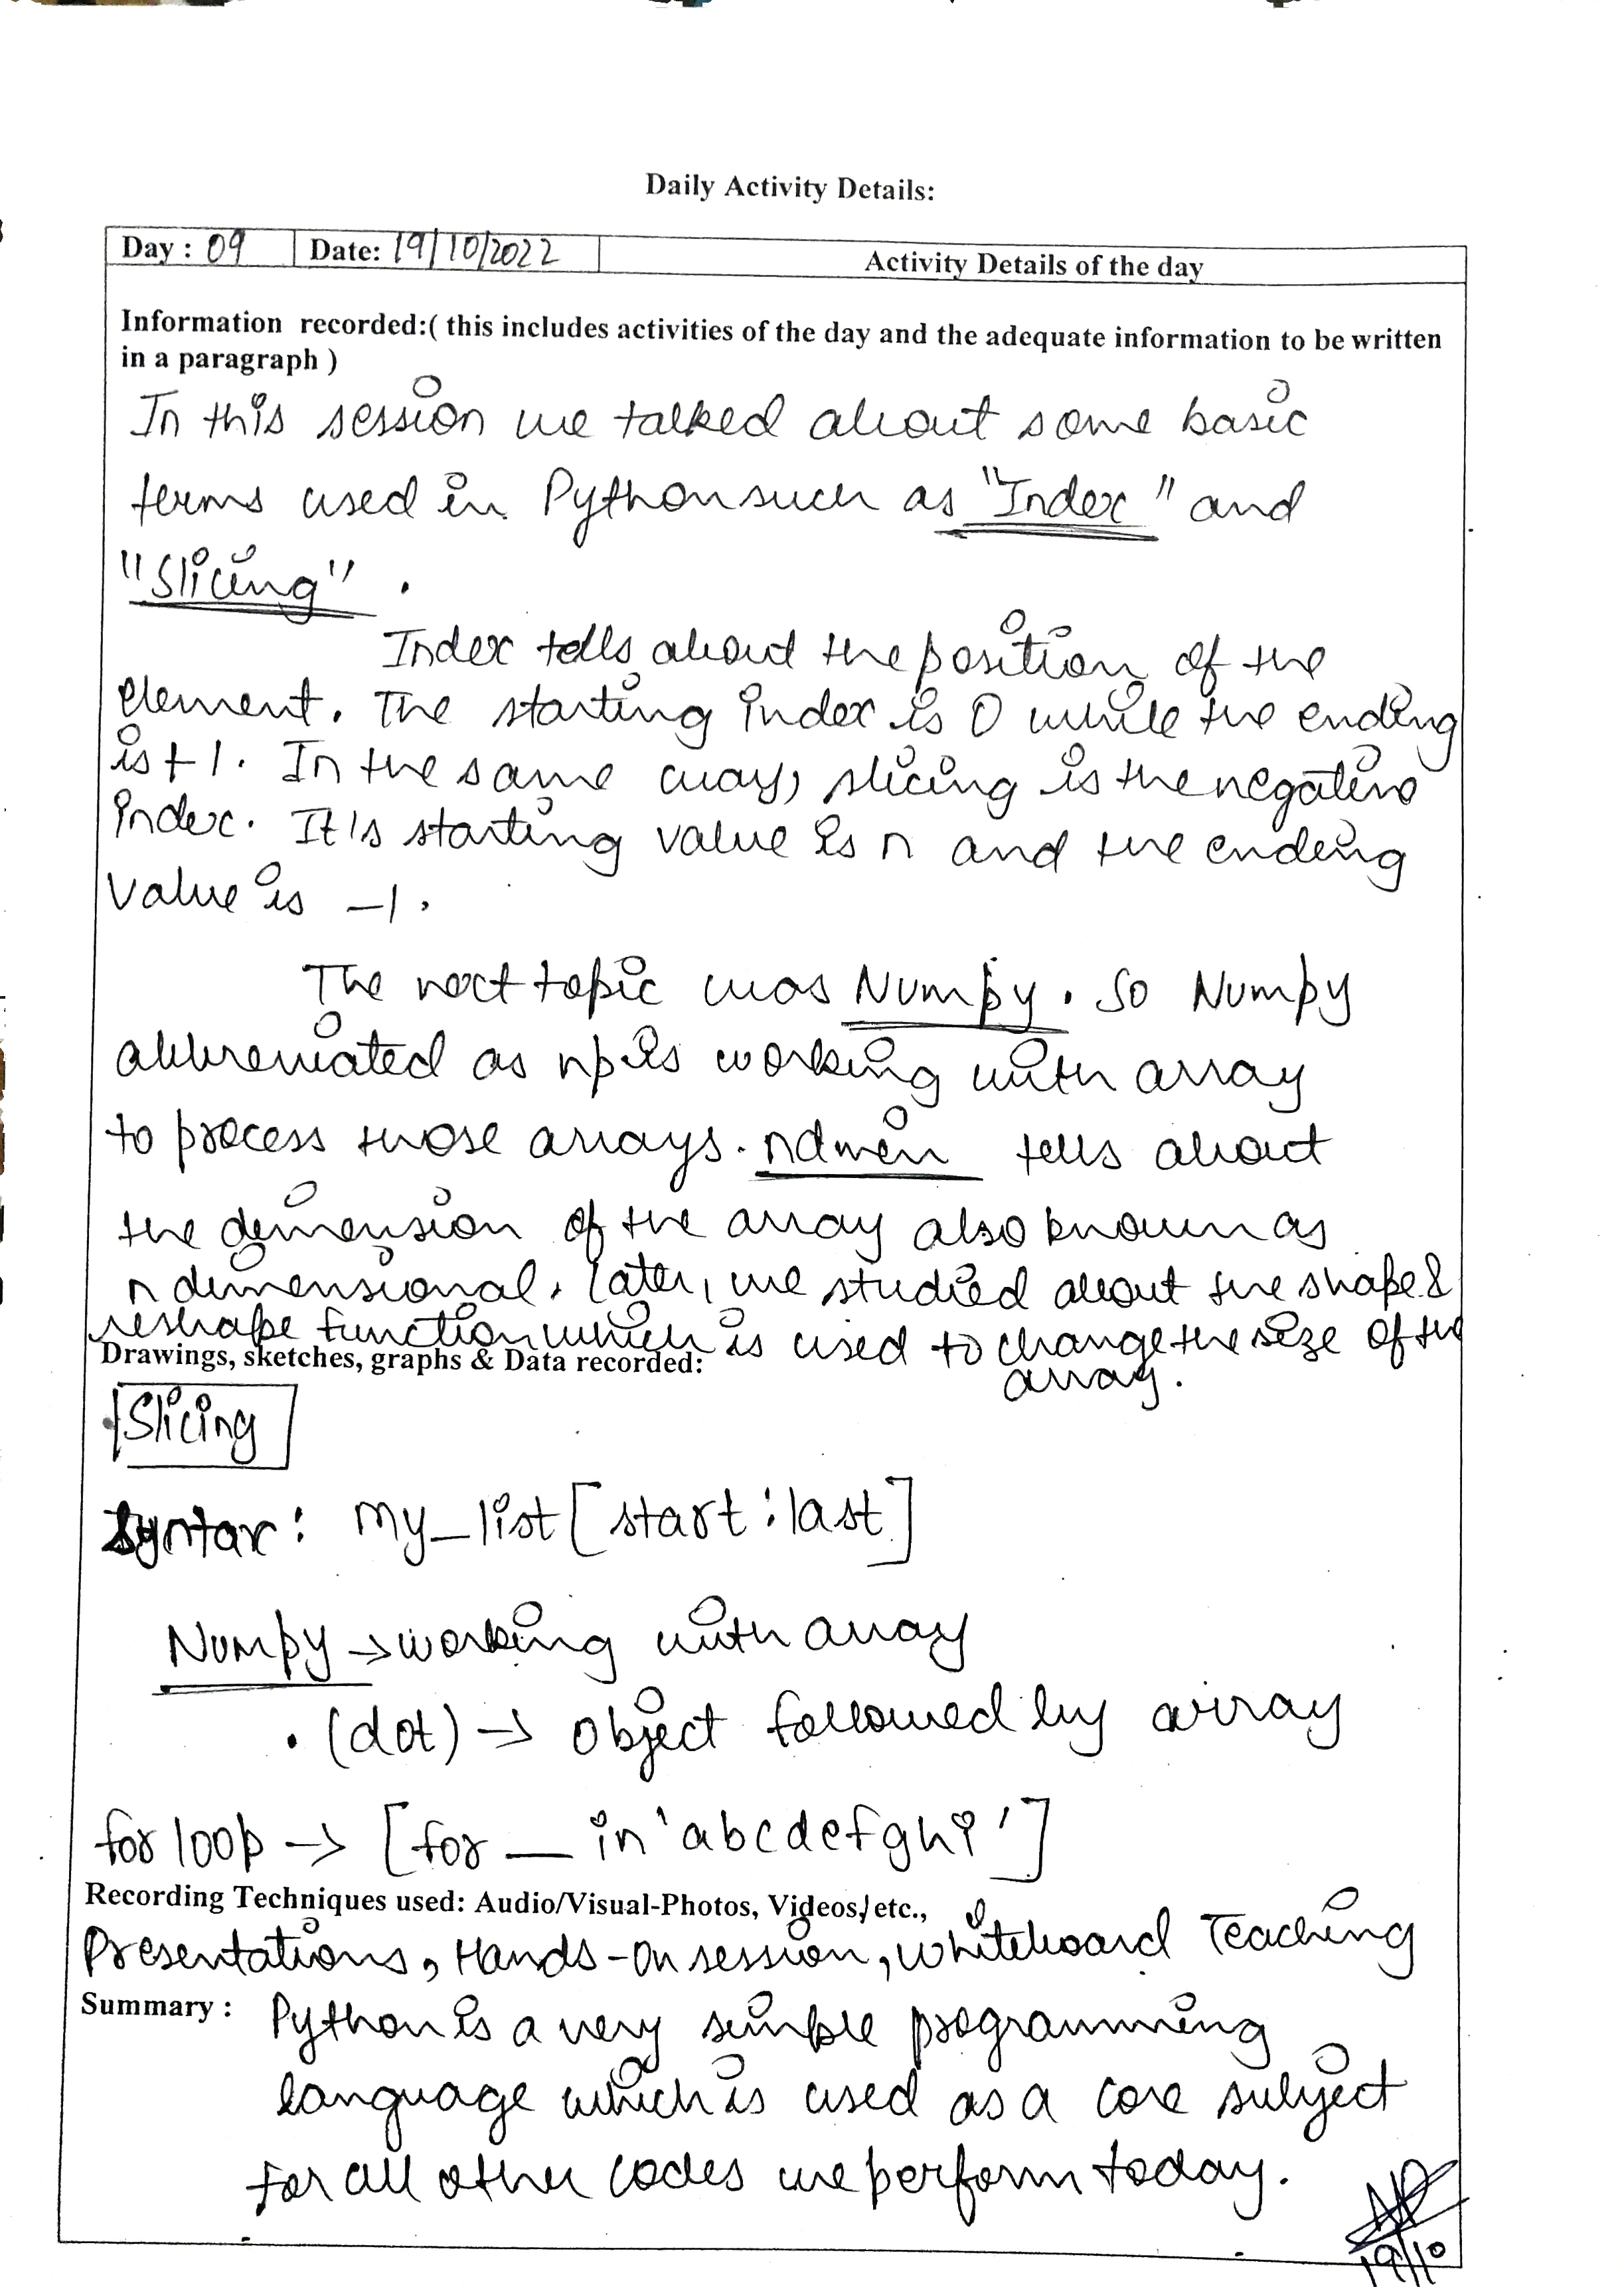 Daily Activity Details:
Day : 09 Date: 19/10/2022 Activity Details of the day
Information recorded:( this includes activities of the day and the adequate information to be written
in a paragraph )
In this session we talked about some basic
terms used in Python such as "Index" and
"Slicing" .
Index tells about the position of the
element. The starting index is 0 while the ending
is +1. In the same way, slicing is the negative
index. It's starting value is n and the ending
value is -1.
The next topic was Numpy. So Numpy
abbreviated as np is working with array
to process those arrays. ndmin tells about
the dimension of the array also known as
n dimensional. Later, we studied about the shape &
reshape function which is used to change the size of the
array.
Drawings, sketches, graphs & Data recorded:
Slicing
Syntax: my_list [start : last]
Numpy → working with array
. (dot) → object followed by array
for loop → [for _ in 'abcdefghi']
Recording Techniques used: Audio/Visual-Photos, Videos, etc.,
Presentations, Hands-On session, Whiteboard Teaching
Summary : Python is a very simple programming
language which is used as a core subject
for all other codes we perform today.
19/10